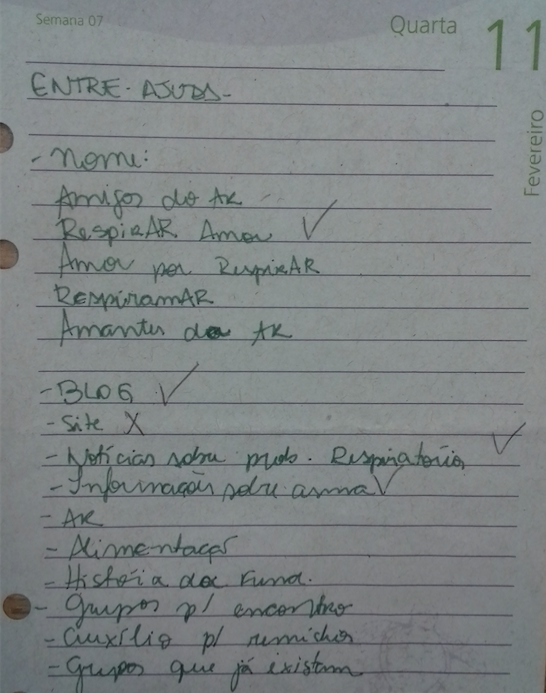 Semana 07
Quarta 11
Fevereiro
ENTRE-AJUDA-
- Nome:
Amigos do AR
RespirAR Amor ✓
Amor por RespirAR
RespiramAR
Amantes do AR
- BLOG ✓
- Site X
- Notícias sobre prob. Respiratórios ✓
- Informações sobre asma ✓
- AR
- Alimentação
- História da Fund.
- Grupos p/ encontro
- Auxílio p/ remédios
- Grupos que já existem